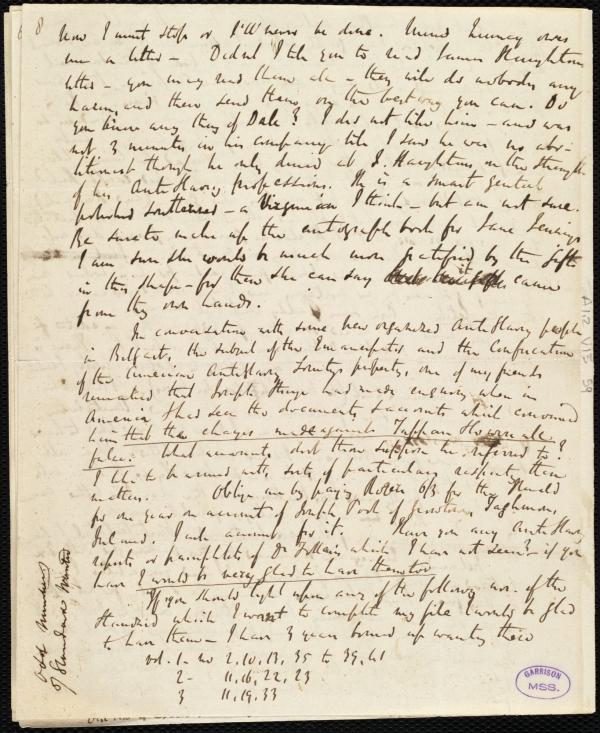 8
Now I must stop or I'll never be done. Miss Murray owes
me a letter – Didst I tell you to read James Haughtons
letter – you may read them all – they will do nobody any
harm, and then send them on the best way you can. Do
you know any thing of Dale? I did not like him – and was
not 3 minutes in his company till I saw he was no abo-
litionist though he only dined at J. Haughtons on the strength
of his Anti Slavery professions. He is a smart genteel
polished southerner – a Virginian I think – but am not sure.
Be sure to make up the autograph book for Jane Jennings
I am sure she would be much more gratified by the gift
in this shape – for then she can say it came
from thy own hands.
In conversation with some new organized Anti Slavery people
in Belfast, the subject of the Emancipator and the Confiscation
of the American AntiSlavery Society's property, one of my friends
remarked that Joseph Sturge had made enquiry when in
America & had seen the documents & accounts which convinced
him that the charges made against Tappan & Co were all
false. What accounts dost thou suppose he referred to?
I like to be armed with sorts of particulars respect these
matters. Oblige me by paying Rogers 6/3 for the Herald
for one year on account of Joseph Poole of Growtown, Taghmon,
Ireland. I will account for it. Have you any Anti Slavery
reports or pamphlets of Dr Follen's which I have not seen? – if you
have I would be very glad to have them too
If you should light upon any of the following nos. of the
Standard which I want to complete my file I would be glad
to have them – I have 3 years bound up wanting these
vol. 1 – no 2, 10, 13, 35 to 39, 41
2 – 11, 16, 22, 23
3 11, 19, 33
odd numbers
of Standards wanted
A.1.2 V.12 59
GARRISON
MSS.